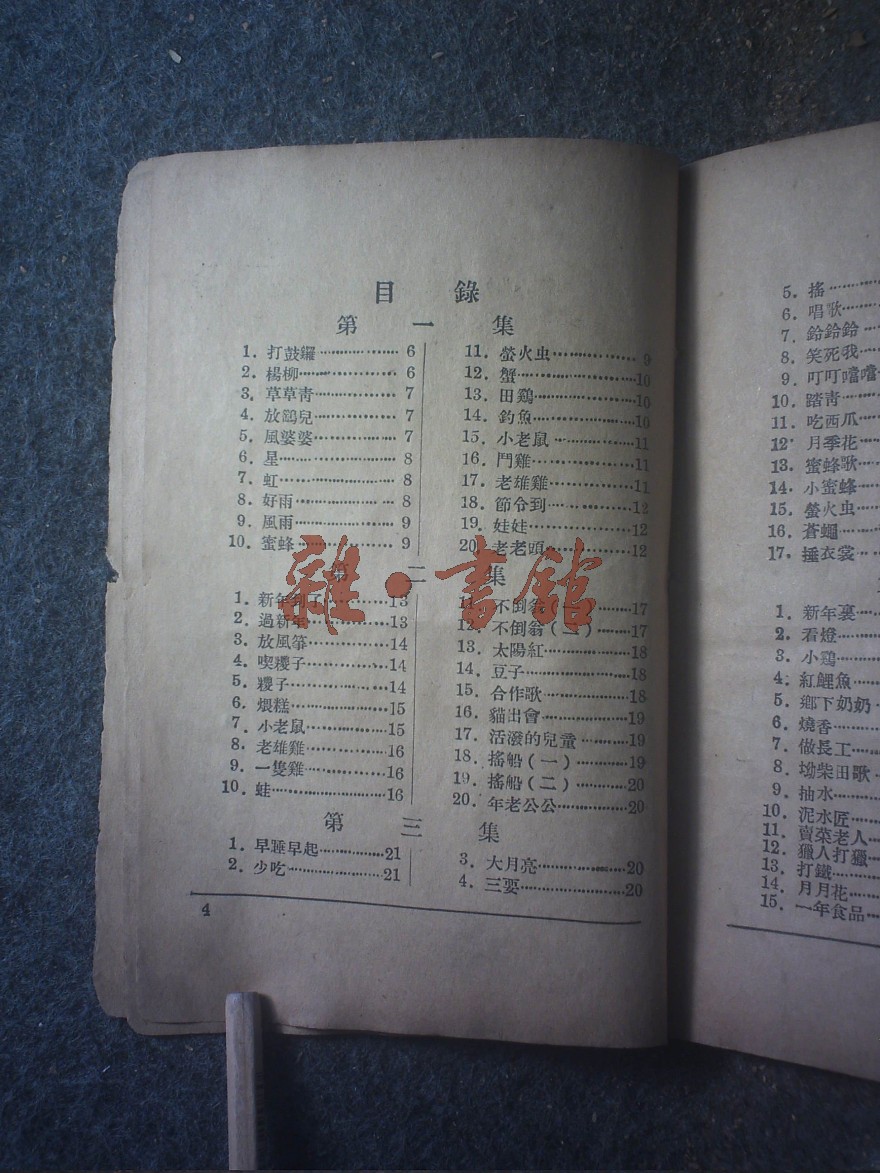 目 錄
第 一 集
1. 打鼓鑼 6
2. 楊柳 6
3. 草草靑 7
4. 放鷂兒 7
5. 風婆婆 7
6. 星 8
7. 虹 8
8. 好雨 8
9. 風雨 9
10. 蜜蜂 9
11. 螢火虫 9
12. 蟹 10
13. 田鷄 10
14. 釣魚 10
15. 小老鼠 11
16. 鬥雞 11
17. 老雄雞 11
18. 節令到 12
19. 娃娃 12
20. 老老頭 12
第 二 集
1. 新年到了 13
2. 過新年 13
3. 放風箏 14
4. 喫糭子 14
5. 糭子 14
6. 煨糕 15
7. 小老鼠 15
8. 老雄雞 16
9. 一隻雞 16
10. 蛙 16
11. 不倒翁(一) 17
12. 不倒翁(二) 17
13. 太陽紅 18
14. 豆子 18
15. 合作歌 18
16. 貓出會 19
17. 活潑的兒童 19
18. 搖船(一) 19
19. 搖船(二) 20
20. 年老公公 20
第 三 集
1. 早睡早起 21
2. 少吃 21
3. 大月亮 20
4. 三要 20
4
雜·書館
5. 搖
6. 唱歌
7. 鈴鈴鈴
8. 笑死我
9. 叮叮噹噹
10. 踏靑
11. 吃西爪
12. 月季花
13. 蜜蜂歌
14. 小蜜蜂
15. 螢火虫
16. 蒼蠅
17. 捶衣裳
1. 新年裏
2. 看燈
3. 小鷄
4. 紅鯉魚
5. 鄉下奶奶
6. 燒香
7. 做長工
8. 坳柴田歌
9. 抽水
10. 泥水匠
11. 賣菜老人
12. 獵人打獵
13. 打鐵
14. 月月花
15. 一年食品